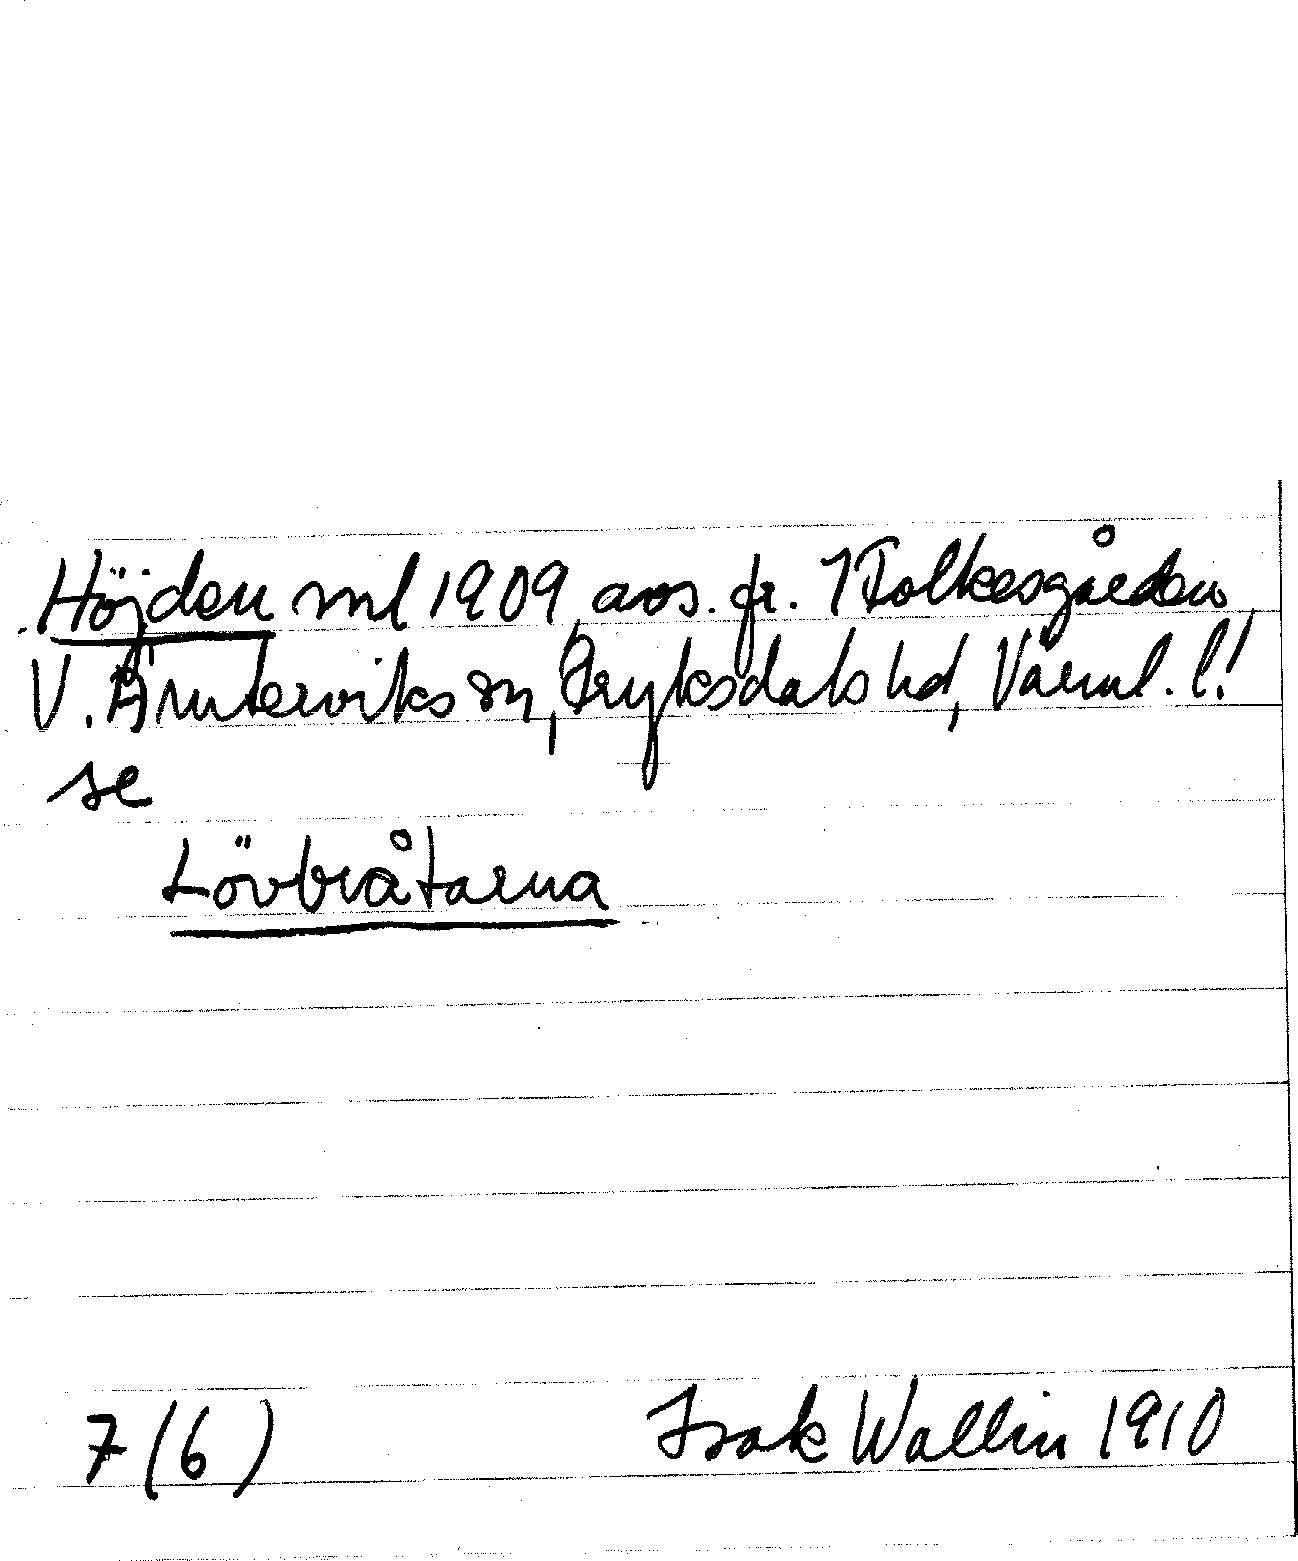 Höjden ml 1909, avs. fr. 1 Folkesgården,
V. Ämterviks sn, Fryksdals hd, Värml. l!
se
Lövbråtarna
7 (6) Isak Wallin 1910